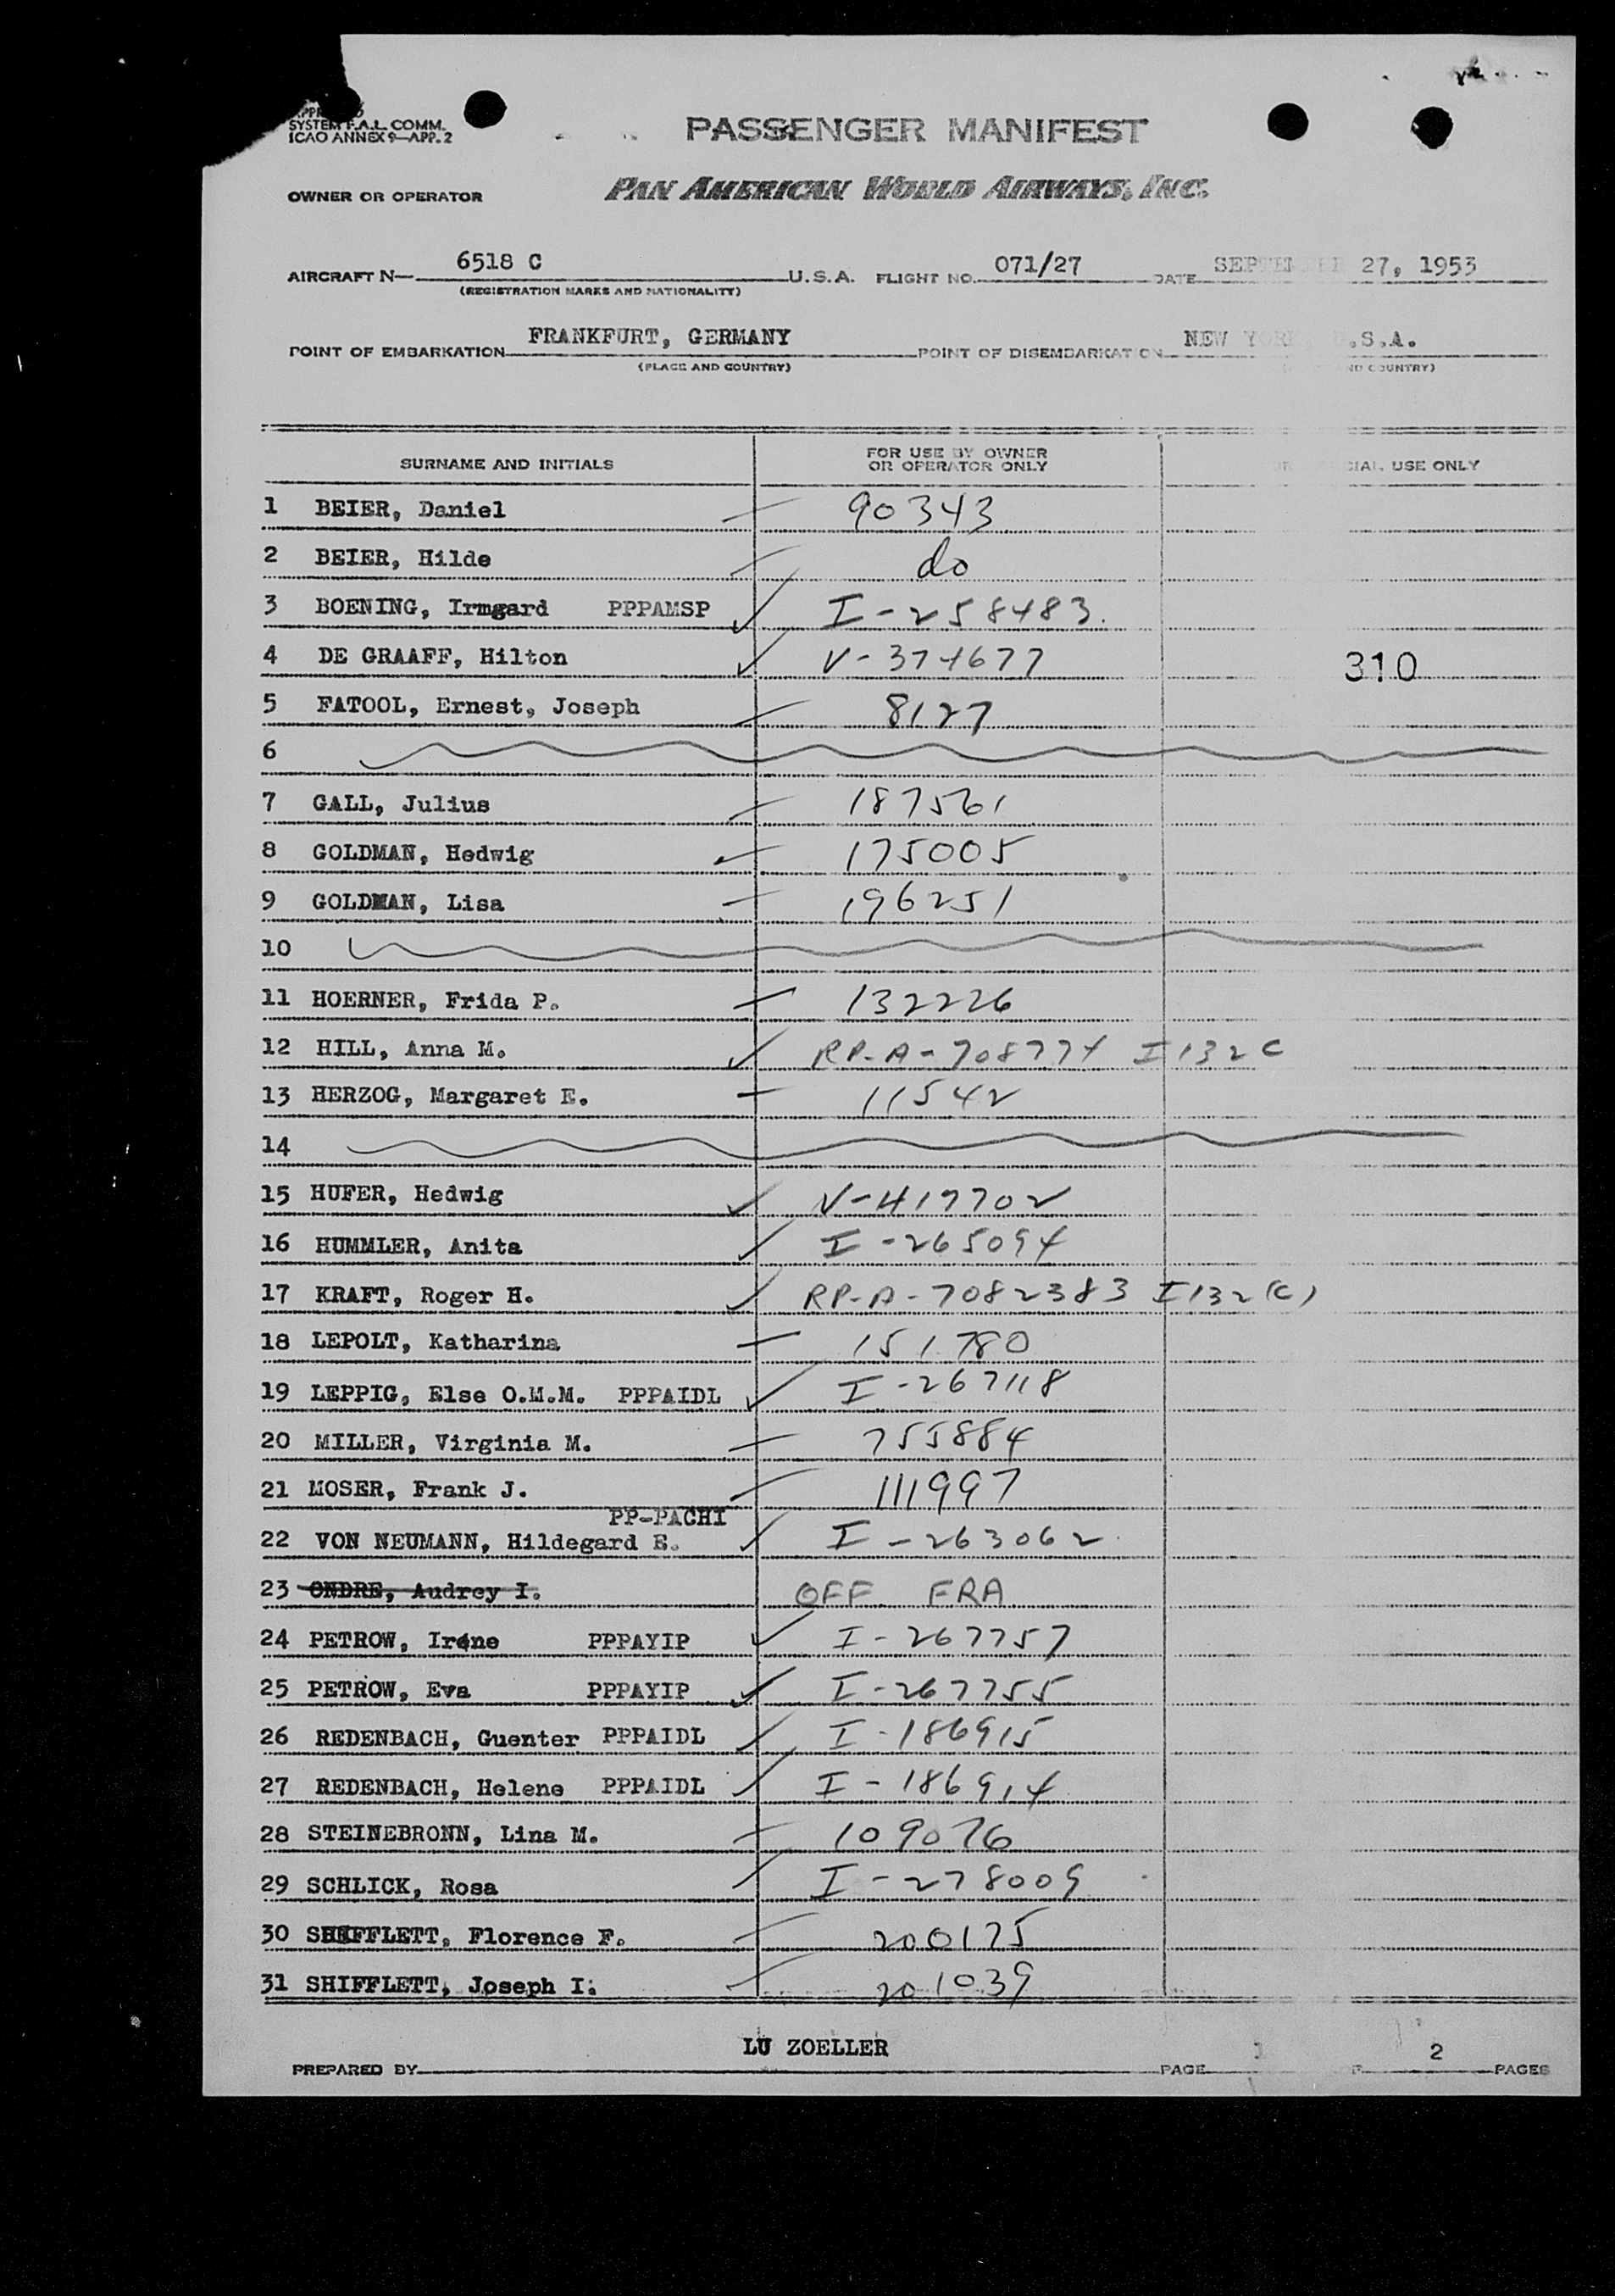 SYSTEM F.A.L. COMM.
ICAO ANNEX 9—APP. 2
PASSENGER MANIFEST
OWNER OR OPERATOR PAN AMERICAN WORLD AIRWAYS, INC.
AIRCRAFT N— 6518 C U.S.A. FLIGHT NO. 071/27 DATE SEPTEMBER 27, 1953
(REGISTRATION MARKS AND NATIONALITY)
POINT OF EMBARKATION FRANKFURT, GERMANY POINT OF DISEMBARKATION NEW YORK, U.S.A.
(PLACE AND COUNTRY) AND COUNTRY)
SURNAME AND INITIALS FOR USE BY OWNER OR OPERATOR ONLY USE ONLY
1 BEIER, Daniel 90343
2 BEIER, Hilde do
3 BOENING, Irmgard PPPAMSP I-258483
4 DE GRAAFF, Hilton V-374677 310
5 FATOOL, Ernest, Joseph 8127
6
7 GALL, Julius 187561
8 GOLDMAN, Hedwig 175005
9 GOLDMAN, Lisa 196251
10
11 HOERNER, Frida P. 132226
12 HILL, Anna M. RP-A-708774 I132C
13 HERZOG, Margaret E. 11542
14
15 HUFER, Hedwig V-417702
16 HUMMLER, Anita I-265094
17 KRAFT, Roger H. RP-A-7082383 I132(C)
18 LEPOLT, Katharina 151780
19 LEPPIG, Else O.M.M. PPPAIDL I-267118
20 MILLER, Virginia M. 755884
21 MOSER, Frank J. 111997
PP-PACHI
22 VON NEUMANN, Hildegard E. I-263062
23 ONDRE, Audrey I. OFF FRA
24 PETROW, Irene PPPAYIP I-267757
25 PETROW, Eva PPPAYIP I-267755
26 REDENBACH, Guenter PPPAIDL I-186915
27 REDENBACH, Helene PPPAIDL I-186914
28 STEINEBRONN, Lina M. 109076
29 SCHLICK, Rosa I-278009
30 SHIFFLETT, Florence F. 200175
31 SHIFFLETT, Joseph I. 201039
PREPARED BY LU ZOELLER PAGE 2 PAGES